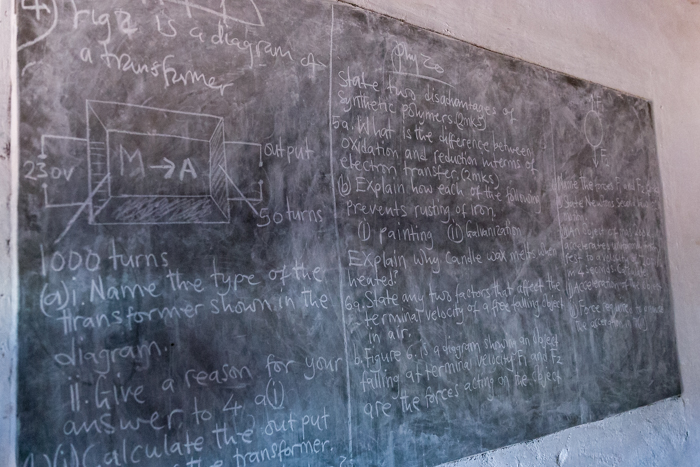 4)
Fig 2 is a diagram of
a transformer
230V
M → A
output
50turns
1000 turns
(a) i. Name the type of the
transformer shown in the
diagram.
ii. Give a reason for your
answer to 4.a(i)
(i) Calculate the output
the transformer.
State two disadvantages of
Synthetic polymers. (2mks)
5a. What is the difference between
oxidation and reduction interms of
electron transfer. (2mks)
(b) Explain how each of the following
Prevents rusting of iron.
(i) painting (ii) Galvanization
Explain why candle wax melts when
heated?
6a. State any two factors that affect the
terminal velocity of a free falling object
in air.
b. Figure 6. is a diagram showing an object
falling at terminal velocity. F1 and F2
are the forces acting on the object
F1
F2
Name the forces F1 and F2
State Newtons Second law of
in 4 seconds
Acceleration of the
Force required to